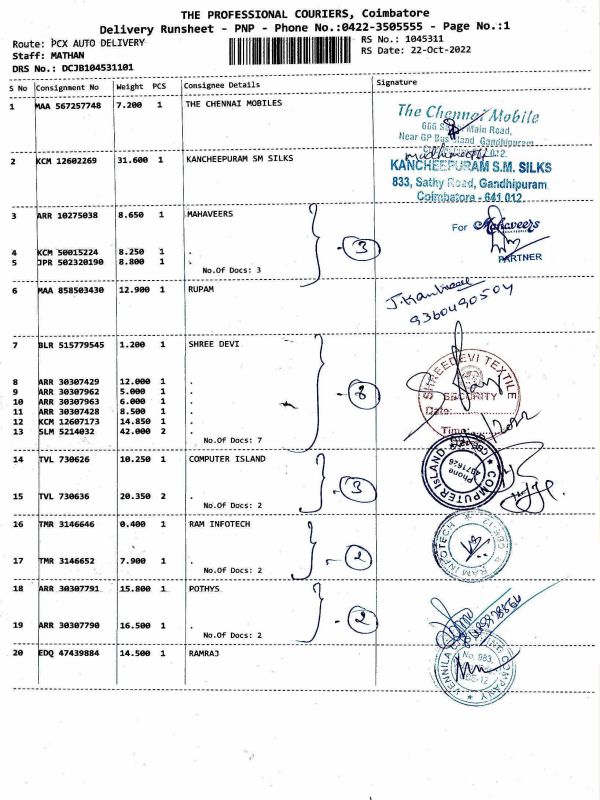 THE PROFESSIONAL COURIERS, Coimbatore
Delivery Runsheet - PNP - Phone No.:0422-3505555 - Page No.:1
Route: PCX AUTO DELIVERY
RS No.: 1045311
Staff: MATHAN
RS Date: 22-Oct-2022
DRS No.: DCJB104531101
S No Consignment No Weight PCS Consignee Details Signature
1 MAA 567257748 7.200 1 THE CHENNAI MOBILES
The Chennai Mobile
Main Road,
Near GP Bus Stand, Gandhipuram
2 KCM 12602269 31.600 1 KANCHEEPURAM SM SILKS
KANCHEEPURAM S.M. SILKS
833, Sathy Road, Gandhipuram
Coimbatore - 641 012.
3 ARR 10275038 8.650 1 MAHAVEERS
For Mahaveers
3
4 KCM 50015224 8.250 1 .
5 JPR 502320190 8.800 1 .
PARTNER
No.Of Docs: 3
6 MAA 858503430 12.900 1 RUPAM
9360490504
7 BLR 515779545 1.200 1 SHREE DEVI
8 ARR 30307429 12.000 1 .
9 ARR 30307962 5.000 1 .
10 ARR 30307963 6.000 1 .
11 ARR 30307428 8.500 1 .
12 KCM 12607173 14.850 1 .
13 SLM 5214032 42.000 2 .
No.Of Docs: 7
8
SHREEDEVI TEXTILE
SECURITY
Date:
Time:
14 TVL 730626 10.250 1 COMPUTER ISLAND
COMPUTER ISLAND
Phone
4371626
3
15 TVL 730636 20.350 2 .
No.Of Docs: 2
16 TMR 3146646 0.400 1 RAM INFOTECH
RAM INFOTECH
CBE-12
2
17 TMR 3146652 7.900 1 .
No.Of Docs: 2
18 ARR 30307791 15.800 1 POTHYS
2
19 ARR 30307790 16.500 1 .
No.Of Docs: 2
20 EDQ 47439884 14.500 1 RAMRAJ
No. 983,
COMPANY